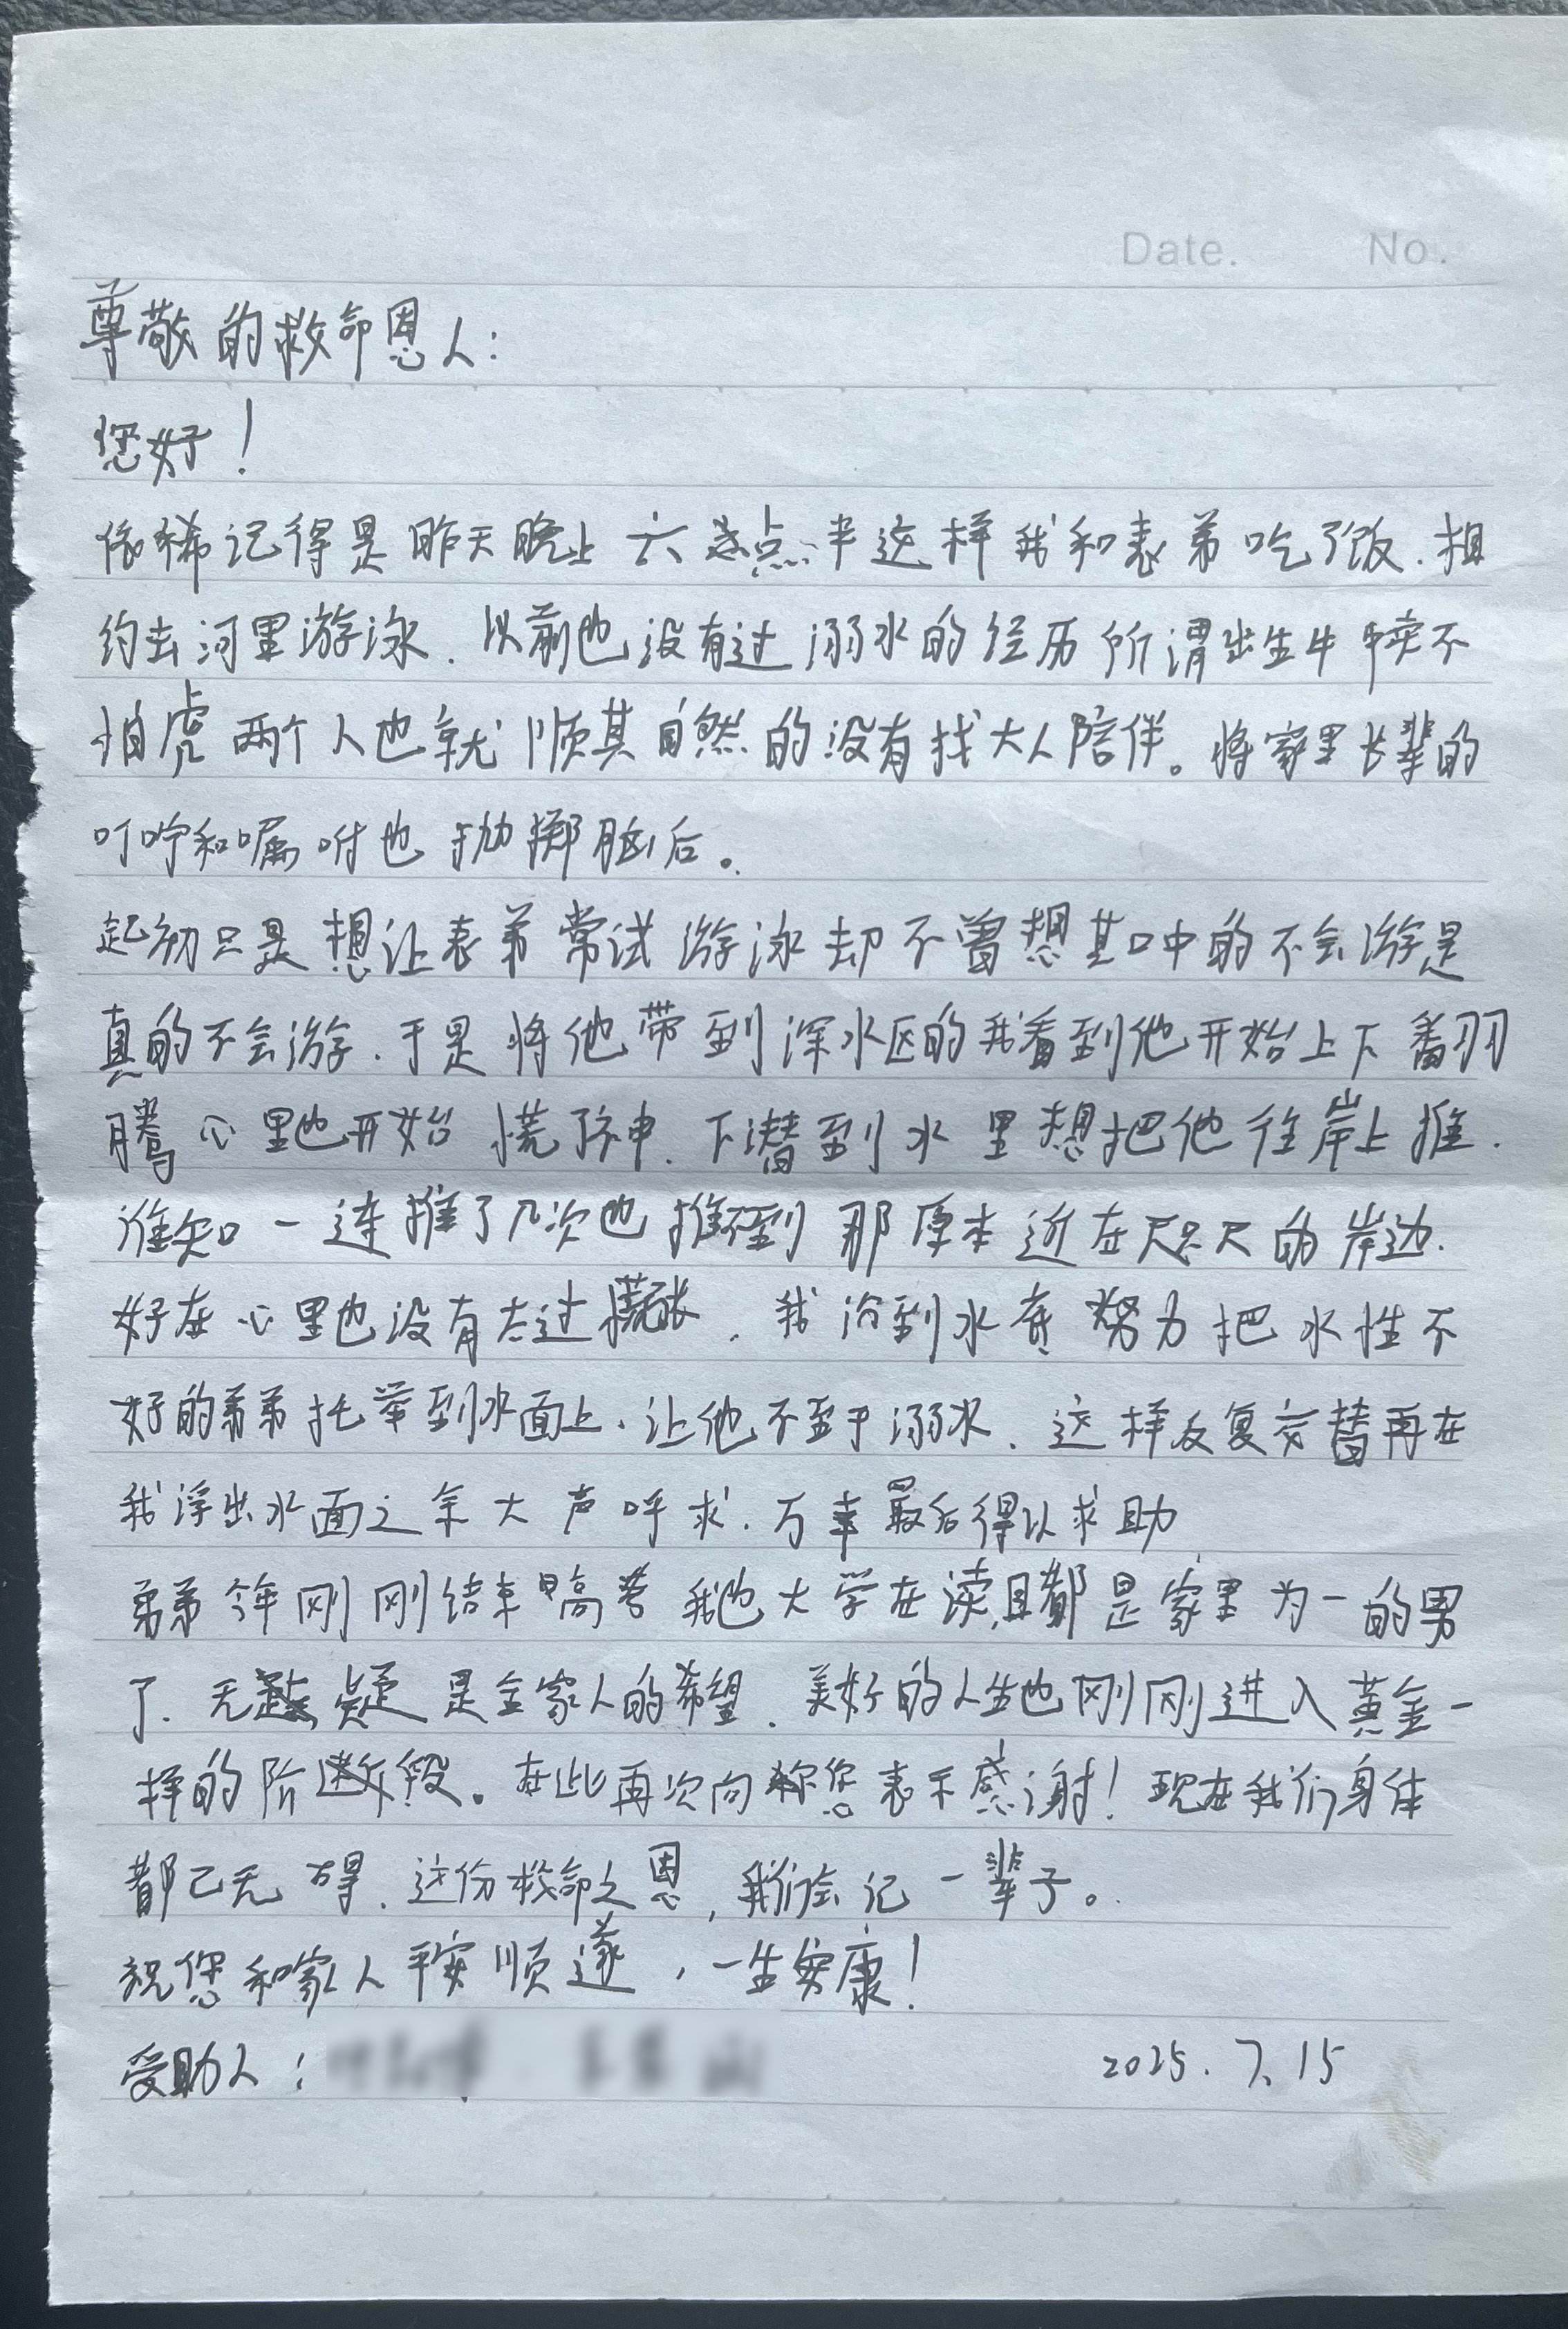 Date. No.
尊敬的救命恩人:
您好!
依稀记得是昨天晚上六点半这样我和表弟吃了饭.相
约去河里游泳.以前也没有过溺水的经历所谓出生牛犊不
怕虎两个人也就顺其自然的没有找大人陪伴。将家里长辈的
叮咛和嘱咐也抛掷脑后。
起初只是想让表弟常试游泳却不曾想其口中的不会游是
真的不会游.于是将他带到深水区的我看到他开始上下翻
腾心里也开始慌了神.下潜到水里想把他往岸上推.
谁知一连推了几次也推不到那原本近在咫尺的岸边.
好在心里也没有太过慌张,我沿到水底努力把水性不
好的弟弟托举到水面上.让他不至于溺水.这样反复交替再在
我浮出水面之余大声呼求.万幸最后得以求助
弟弟今年刚刚结束高考我也大学在读,且都是家里为一的男
丁.无疑是全家人的希望.美好的人生也刚刚进入黄金一
样的阶段。在此再次向您表示感谢!现在我们身体
都已无碍.这份救命之恩,我们会记一辈子。
祝您和家人平安顺遂,一生安康!
受助人: 2025.7.15